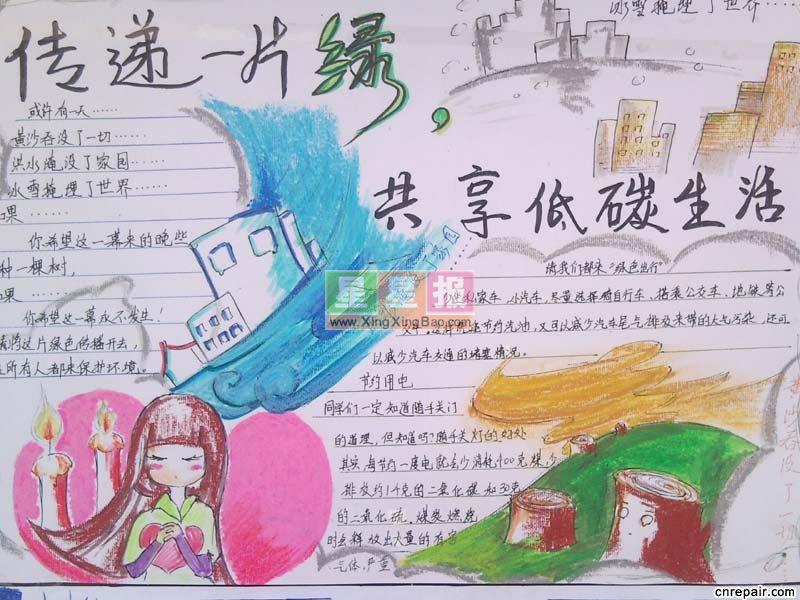 传递一片绿，
共享低碳生活
冰雪掩埋了世界……
或许有一天……
黄沙吞没了一切……
洪水淹没了家园……
冰雪掩埋了世界……
果……
你希望这一幕来的晚些
种一棵树，
果……
你希望这一幕永不发生！
这片绿色传播开去，
所有人都来保护环境。
让我们都来“绿色出行”
私家车、小汽车，尽量选择骑自行车、搭乘公交车、地铁等公
节约汽油，又可以减少汽车尾气排放来带的大气污染，还可
以减少汽车交通的堵塞情况。
节约用电
同学们一定知道随手关门
的道理，但知吗？随手关灯的好处
其实，每节约一度电就会少消耗400克煤，少
排放约1千克的二氧化碳和30克
的二氧化硫，煤炭燃烧
时会释放出大量的有害
气体，严重
黄沙吞没了一切
星星报
www.XingXingBao.com
cnrepair.com